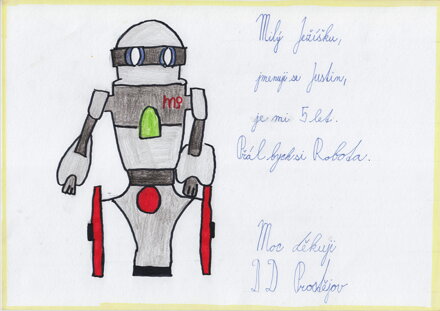 Milý Ježíšku,
jmenuji se Justin,
je mi 5 let.
Přál bych si Robota.
Moc děkuji
DD Prostějov